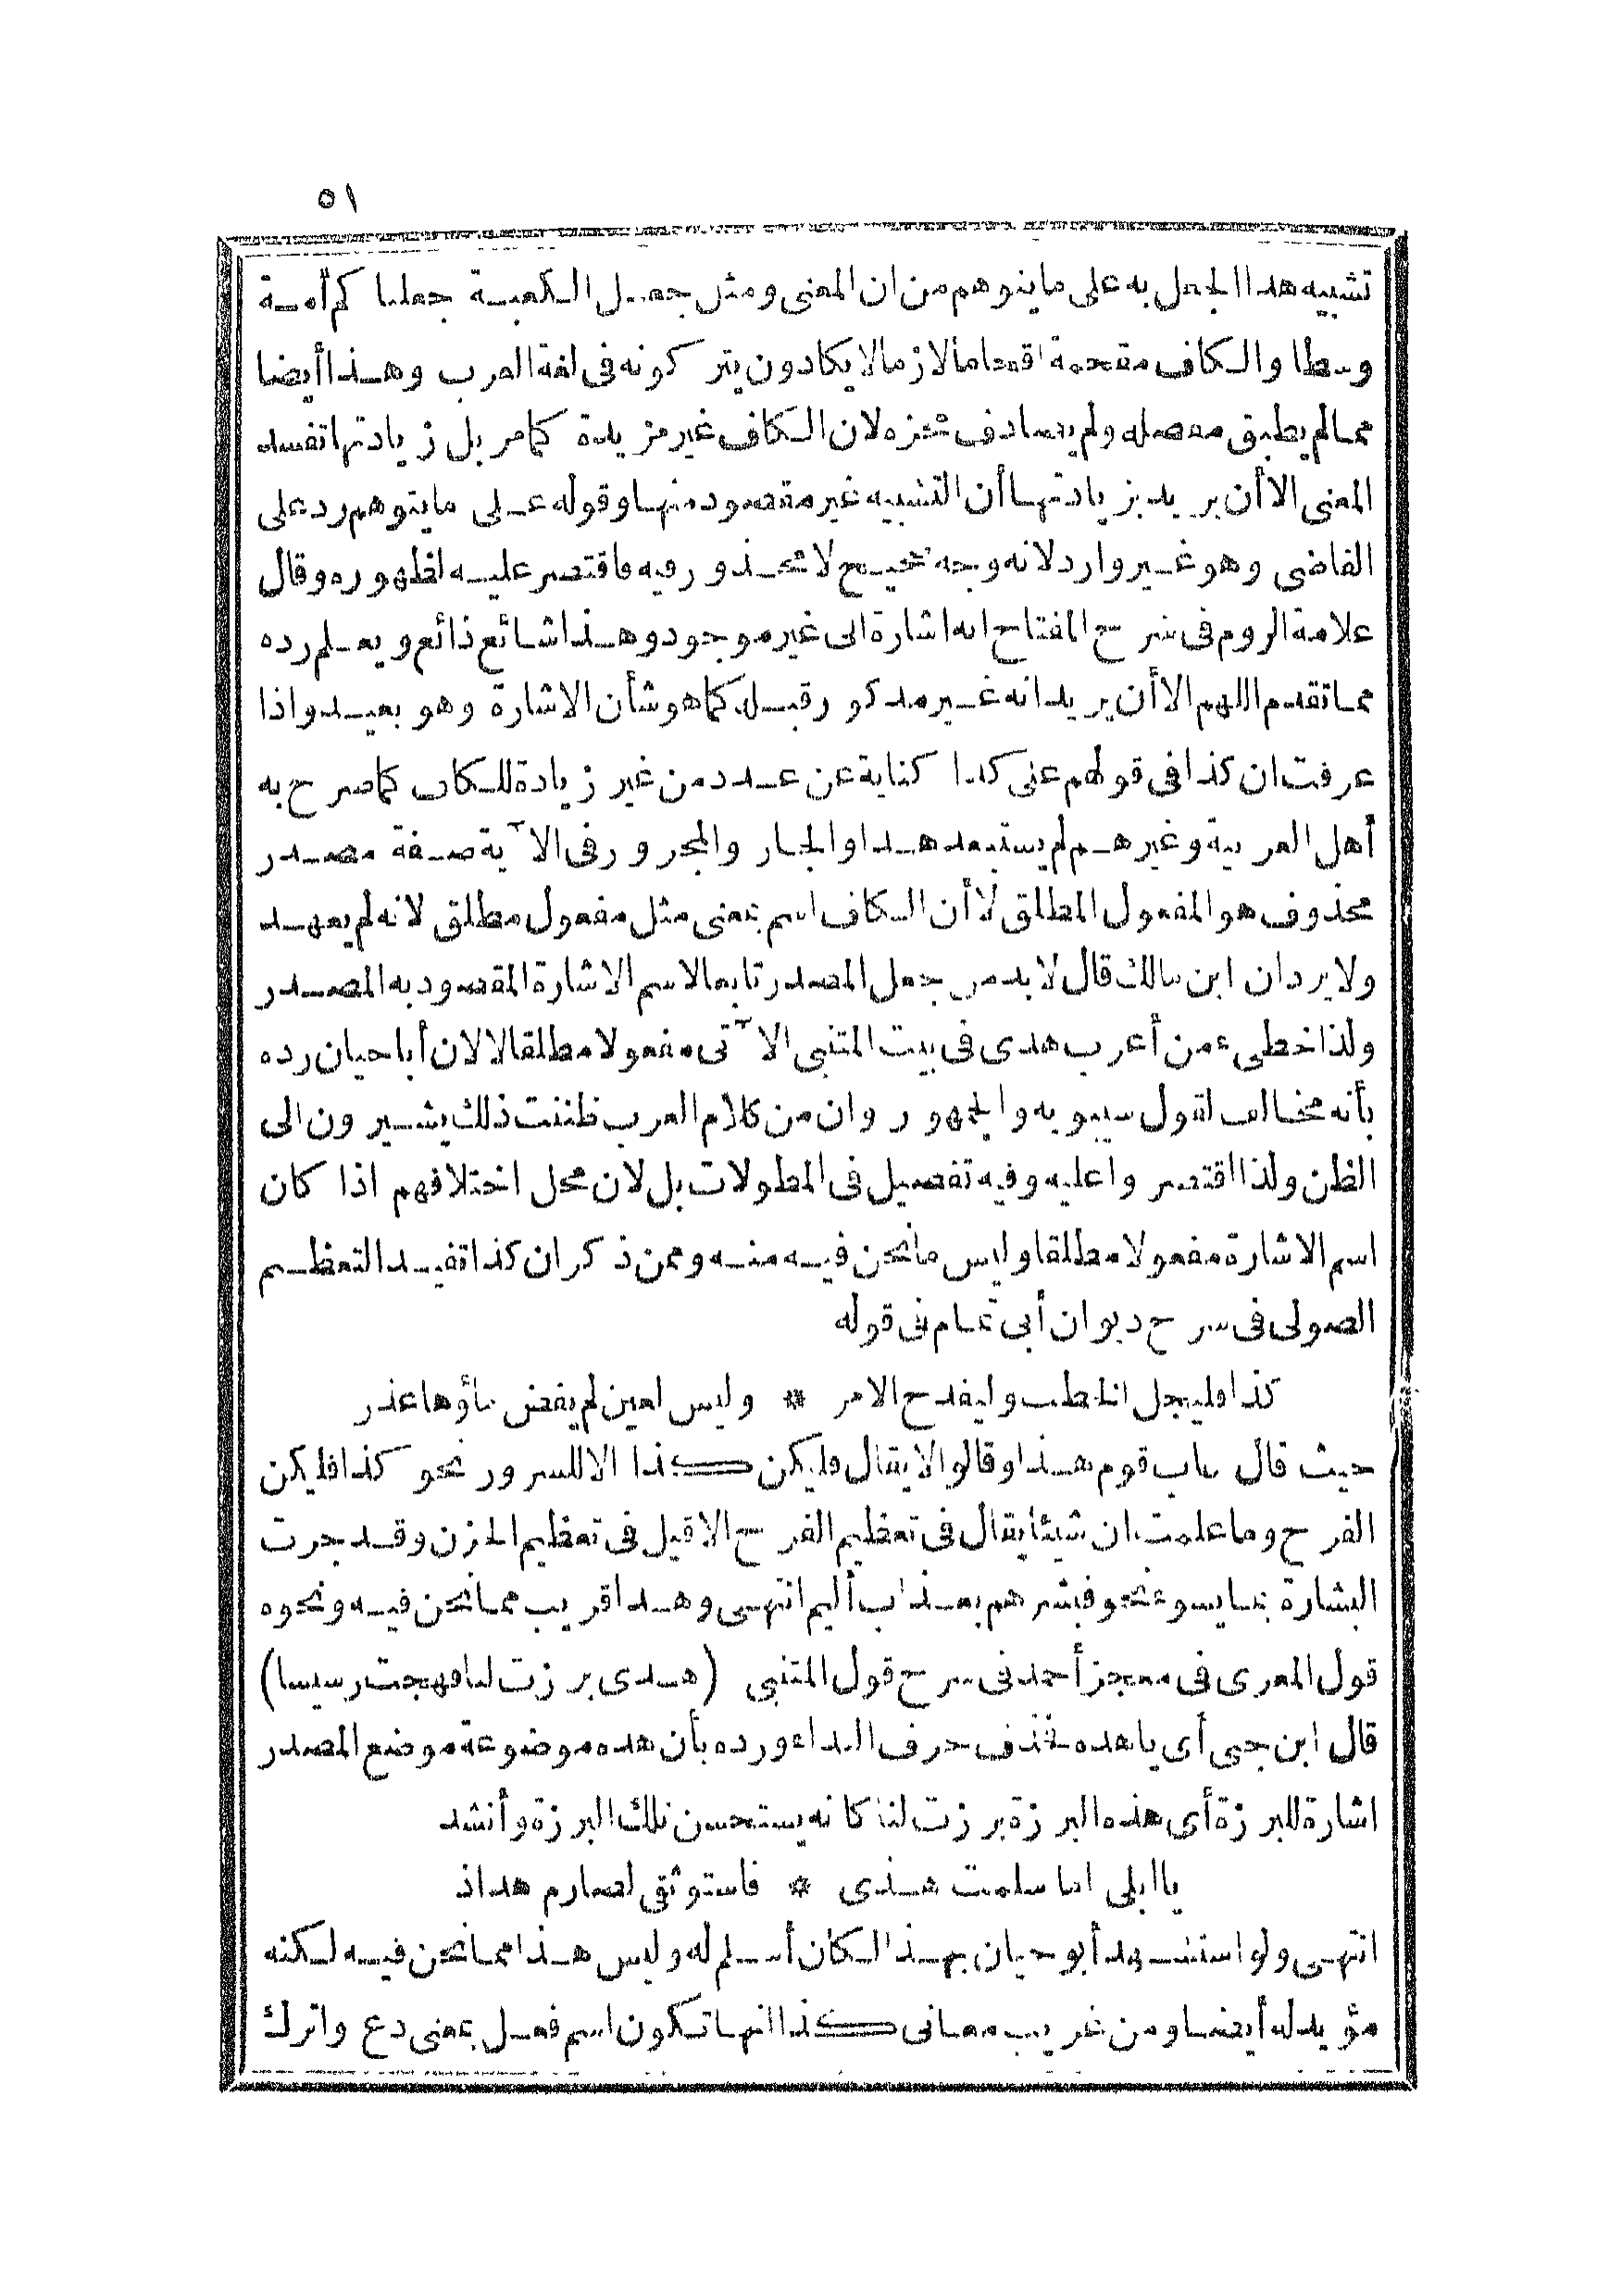 ٥١
تشبيه هذا الجعل به على ما يتوهم من ان المعنى ومثل جعل الكعبة جعلنا كم أمة
وسطا والكاف مقحمة اقحاما لازما لا يكادون يتركونه فى لغة العرب وهذا أيضا
مما لم يطبق مفصله ولم يصادف محزه لان الكاف غير مزيدة كما مر بل زيادتها تفسد
المعنى الا أن يريد بزيادتها أن التشبيه غير مقصود منها وقوله على ما يتوهم رد على
القاضى وهو غير وارد لانه وجه صحيح لا محذور فيه فاقتصر عليه لظهوره وقال
علامة الروم فى شرح المفتاح انه اشارة الى غير موجود وهذا شائع ذائع ويعلم رده
مما تقدم اللهم الا أن يريد انه غير مذكور قبل كما هو شأن الاشارة وهو بعيد واذا
عرفت ان كذا فى قولهم عنى كذا كناية عن عدد من غير زيادة للكاف كما صرح به
أهل العربية وغيرهم لم يستبعد هذا والجار والمجرور فى الآية صفة مصدر
محذوف هو المفعول المطلق لا أن الكاف اسم بمعنى مثل مفعول مطلق لانه لم يعهد
ولا يرد ان ابن مالك قال لا بد من جعل المصدر تابعا لاسم الاشارة المقصود به المصدر
ولذا خطىء من أعرب هذى فى بيت المتنبى الآتى مفعولا مطلقا لا لان أبا حيان رده
بأنه مخالف لقول سيبويه والجمهور وان من كلام العرب ظننت ذلك يشيرون الى
الظن ولذا اقتصروا عليه وفيه تفصيل فى المطولات بل لان محل اختلافهم اذا كان
اسم الاشارة مفعولا مطلقا وليس ما نحن فيه منه وممن ذكر ان كذا تفيد التعظيم
الصولى فى شرح ديوان أبى تمام فى قوله
كذا فليجل الخطب وليفدح الامر * وليس لعين لم يفض ماؤها عذر
حيث قال عاب قوم هذا وقالوا لا يقال فليكن كذا الا للسرور نحو كذا فليكن
الفرح وما علمت ان شيئا يقال فى تعظيم الفرح الا قيل فى تعظيم الحزن وقد جرت
البشارة بما يسوء نحو فبشرهم بعذاب أليم انتهى وهذا قريب مما نحن فيه ونحوه
قول المعرى فى معجز أحمد فى شرح قول المتنبى (هذى برزت لنا فهجت رسيسا)
قال ابن جنى أى يا هذه فحذف حرف النداء ورده بأن هذه موضوعة موضع المصدر
اشارة للبرزة أى هذه البرزة برزت لنا كانه يستحسن تلك البرزة وأنشد
يا ابلى اما سلمت هذى * فاستوثقى لصارم هذاذ
انتهى ولو استشهد أبو حيان بهذا لكان أسلم له وليس هذا مما نحن فيه لكنه
مؤيد له أيضا ومن غريب معانى كذا انها تكون اسم فعل بمعنى دع واترك